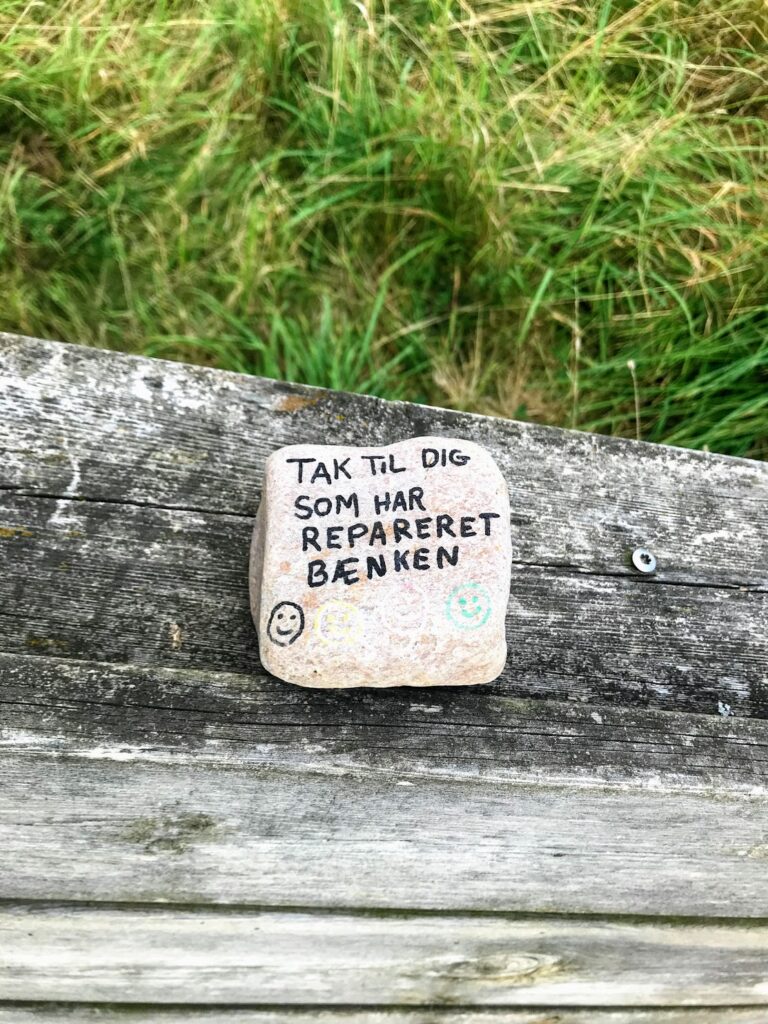 TAK TIL DIG
SOM HAR
REPARERET
BÆNKEN